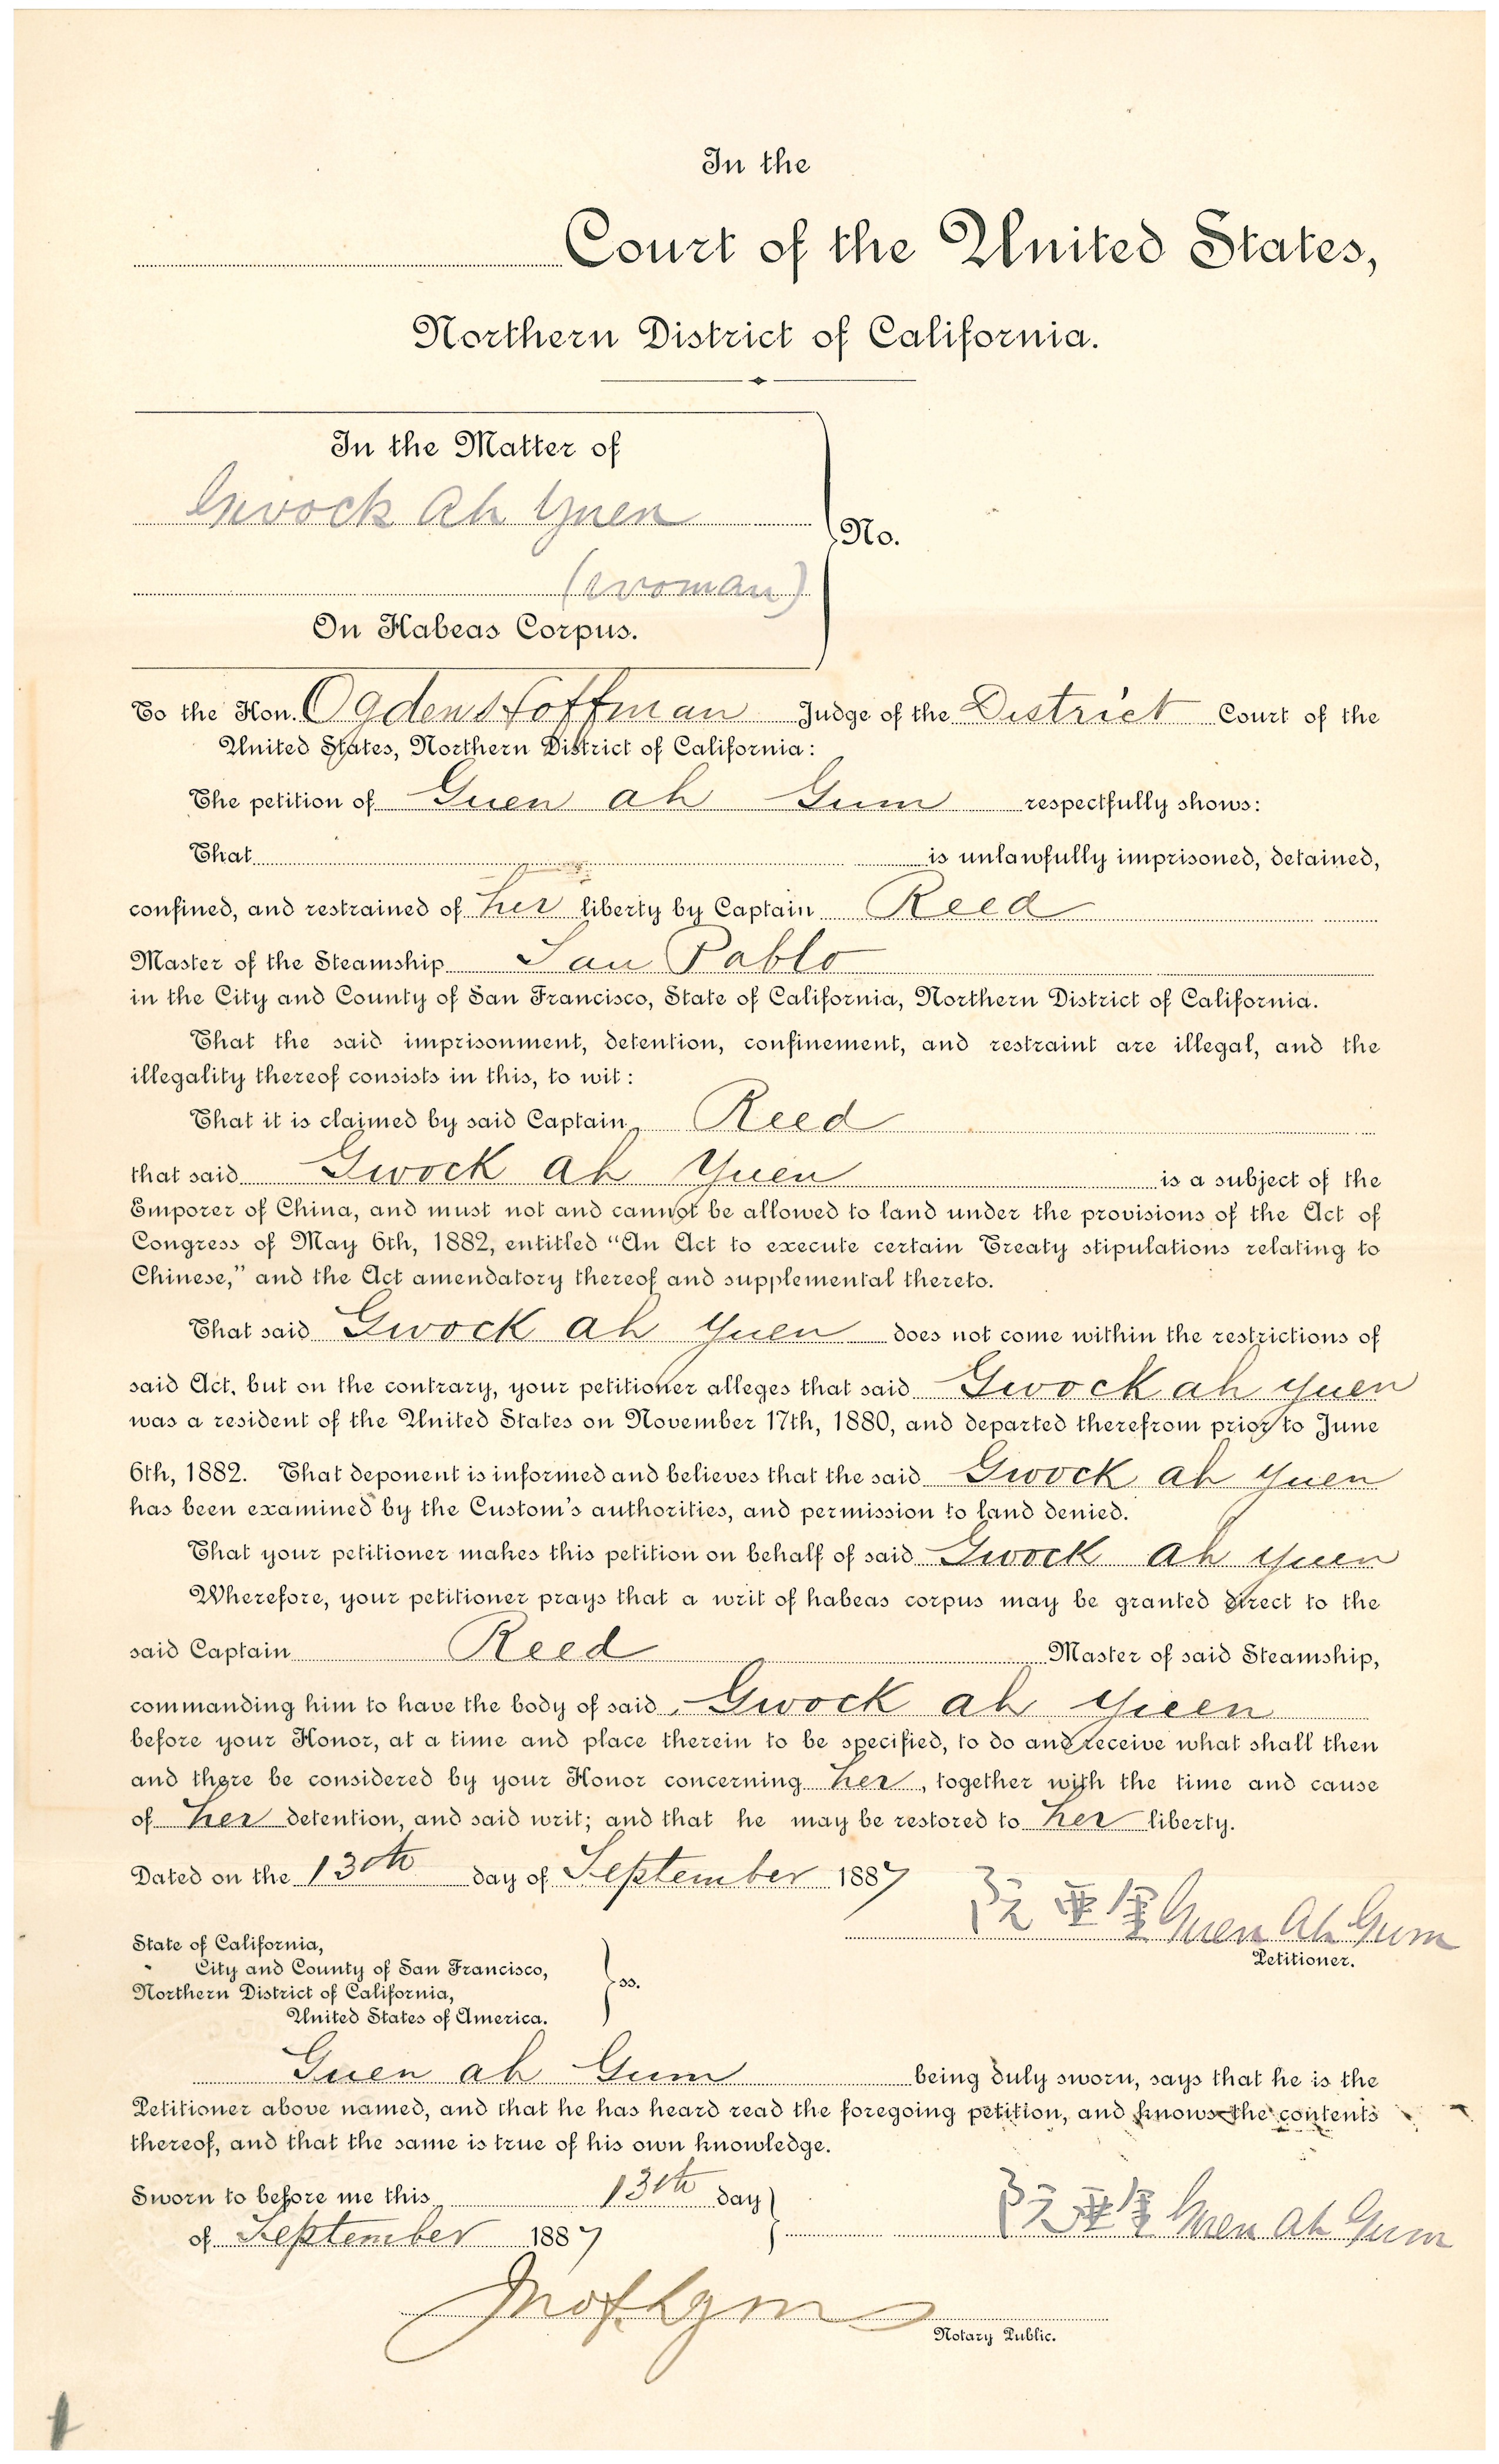 In the
Court of the United States,
Northern District of California.
In the Matter of
Gwock Ah Yuen
(woman)
No.
On Habeas Corpus.
To the Hon. Ogden Hoffman Judge of the District Court of the
United States, Northern District of California:
The petition of Guen ah Gum respectfully shows:
That is unlawfully imprisoned, detained,
confined, and restrained of her liberty by Captain Reed
Master of the Steamship San Pablo
in the City and County of San Francisco, State of California, Northern District of California.
That the said imprisonment, detention, confinement, and restraint are illegal, and the
illegality thereof consists in this, to wit:
That it is claimed by said Captain Reed
that said Gwock ah Yuen is a subject of the
Emporer of China, and must not and cannot be allowed to land under the provisions of the Act of
Congress of May 6th, 1882, entitled "An Act to execute certain Treaty stipulations relating to
Chinese," and the Act amendatory thereof and supplemental thereto.
That said Gwock ah Yuen does not come within the restrictions of
said Act, but on the contrary, your petitioner alleges that said Gwock ah Yuen
was a resident of the United States on November 17th, 1880, and departed therefrom prior to June
6th, 1882. That deponent is informed and believes that the said Gwock ah Yuen
has been examined by the Custom's authorities, and permission to land denied.
That your petitioner makes this petition on behalf of said Gwock ah Yuen
Wherefore, your petitioner prays that a writ of habeas corpus may be granted direct to the
said Captain Reed Master of said Steamship,
commanding him to have the body of said Gwock ah Yuen
before your Honor, at a time and place therein to be specified, to do and receive what shall then
and there be considered by your Honor concerning her, together with the time and cause
of her detention, and said writ; and that he may be restored to her liberty.
Dated on the 13th day of September 1887
阮亚金 Guen Ah Gum
Petitioner.
State of California,
City and County of San Francisco,
Northern District of California,
United States of America.
ss.
Guen ah Gum being duly sworn, says that he is the
Petitioner above named, and that he has heard read the foregoing petition, and knows the contents
thereof, and that the same is true of his own knowledge.
Sworn to before me this 13th day
of September 1887
阮亚金 Guen Ah Gum
Notary Public.